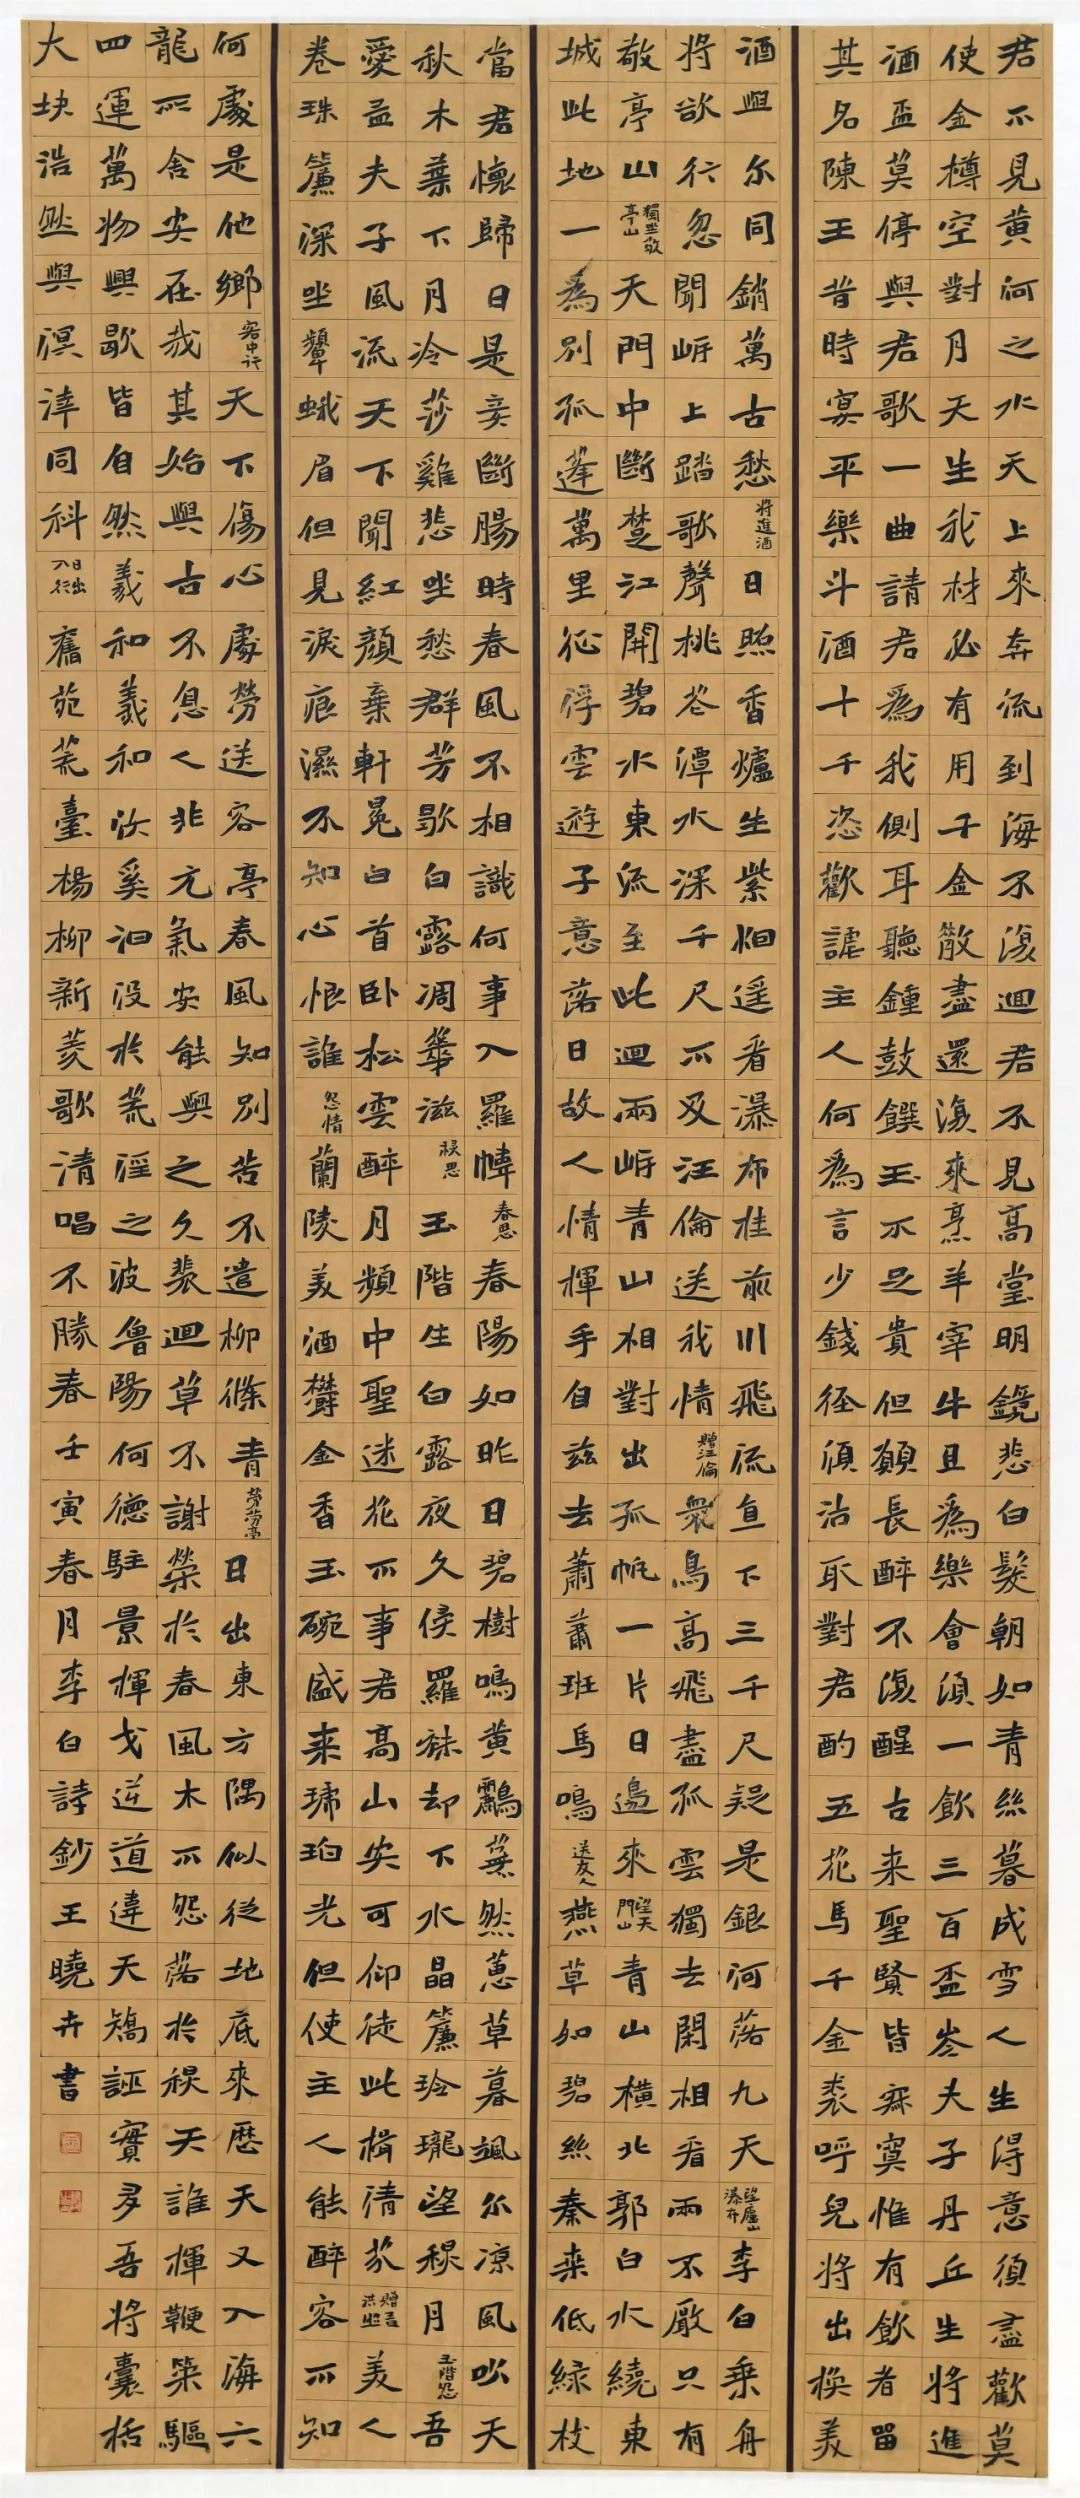 君不見黃河之水天上來奔流到海不復迴君不見高堂明鏡悲白髮朝如青絲暮成雪人生得意須盡歡莫
使金樽空對月天生我材必有用千金散盡還復來烹羊宰牛且為樂會須一飲三百盃岑夫子丹丘生將進
酒盃莫停與君歌一曲請君為我側耳聽鍾鼓饌玉不足貴但願長醉不復醒古来聖賢皆寂寞惟有飲者留
其名陳王昔時宴平樂斗酒十千恣歡謔主人何為言少錢徑須沽取對君酌五花馬千金裘呼兒將出換美
酒與尔同銷萬古愁 將進酒 日照香爐生紫烟遥看瀑布挂前川飛流直下三千尺疑是銀河落九天 望廬山瀑布 李白乘舟
將欲行忽聞岸上踏歌聲桃花潭水深千尺不及汪倫送我情 贈汪倫 衆鳥高飛盡孤雲獨去閑相看兩不厭只有
敬亭山 獨坐敬亭山 天門中斷楚江開碧水東流至此迴兩岸青山相對出孤帆一片日邊來 望天門山 青山橫北郭白水繞東
城此地一為別孤蓬萬里征浮雲遊子意落日故人情揮手自茲去蕭蕭班馬鳴 送友人 燕草如碧絲秦桒低緑枝
當君懷歸日是妾斷腸時春風不相識何事入羅幃 春思 春陽如昨日碧樹鳴黄鸝蕪然蕙草暮颯尔凉風吹天
秋木葉下月冷莎雞悲坐愁群芳歇白露凋華滋 秋思 玉階生白露夜久侵羅襪却下水晶簾玲瓏望秋月 玉階怨 吾
愛孟夫子風流天下聞紅顏棄軒冕白首卧松雲醉月頻中聖迷花不事君高山安可仰徒此揖清芬 贈孟浩然 美人
卷珠簾深坐顰蛾眉但見淚痕濕不知心恨誰 怨情 蘭陵美酒鬱金香玉碗盛来琥珀光但使主人能醉客不知
何處是他鄉 客中行 天下傷心處勞送客亭春風知別苦不遣柳條青 勞勞亭 日出東方隈似從地底來歷天又入海六
龍所舍安在哉其始與古不息人非元氣安能與之久裴迴草不謝榮於春風木不怨落於秋天誰揮鞭策驅
四運萬物興歇皆自然羲和羲和汝奚汩没於荒淫之波魯陽何德駐景揮戈逆道違天矯誣實多吾將囊括
大块浩然與溟涬同科 日出入行 舊苑荒臺楊柳新菱歌清唱不勝春壬寅春月李白詩鈔王曉卉書